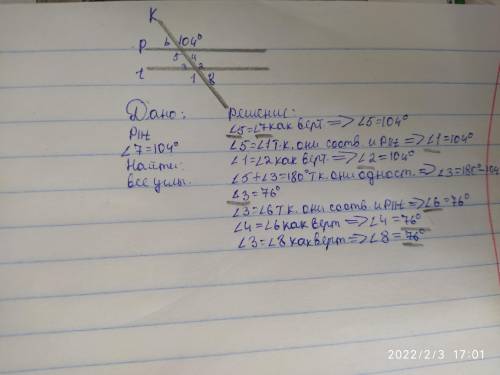 K
P 6 104°
5 4
t 3 2
1 8
Дано:
P||t
∠7=104°
Найти:
все углы.
Решение:
∠5=∠7 как верт. => ∠5=104°
∠5=∠1 т.к. они соотв. и P||t => ∠1=104°
∠1=∠2 как верт. => ∠2=104°
∠5+∠3=180° т.к. они одност. => ∠3=180°-104
∠3=76°
∠3=∠6 т.к. они соотв. и P||t => ∠6=76°
∠4=∠6 как верт => ∠4=76°
∠3=∠8 как верт => ∠8=76°
2022/2/3 17:01